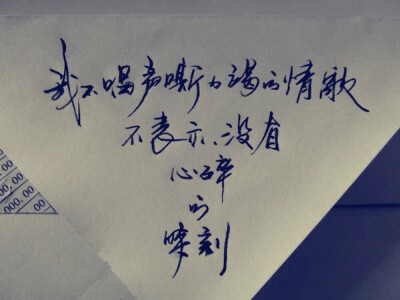 我不唱声嘶力竭的情歌
不表示、没有
心碎
的
時刻
00
00.00
000.00